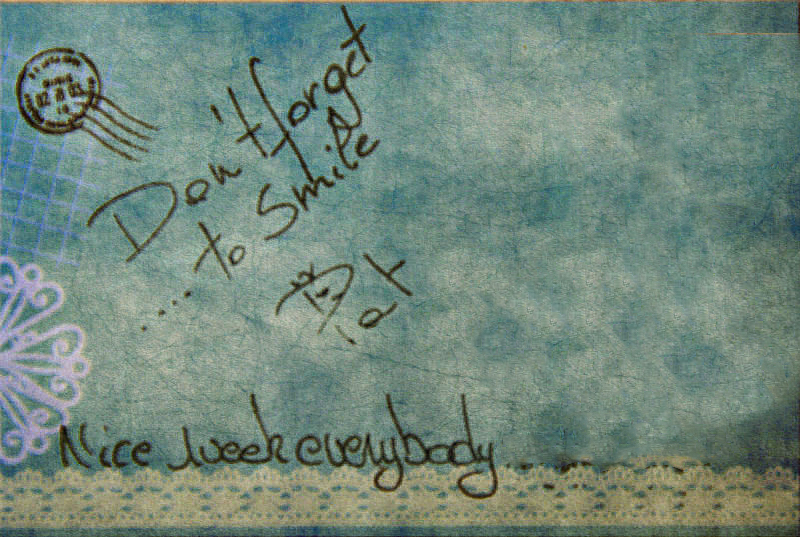 Don't forget
....to Smile
Pat
Nice week everybody...